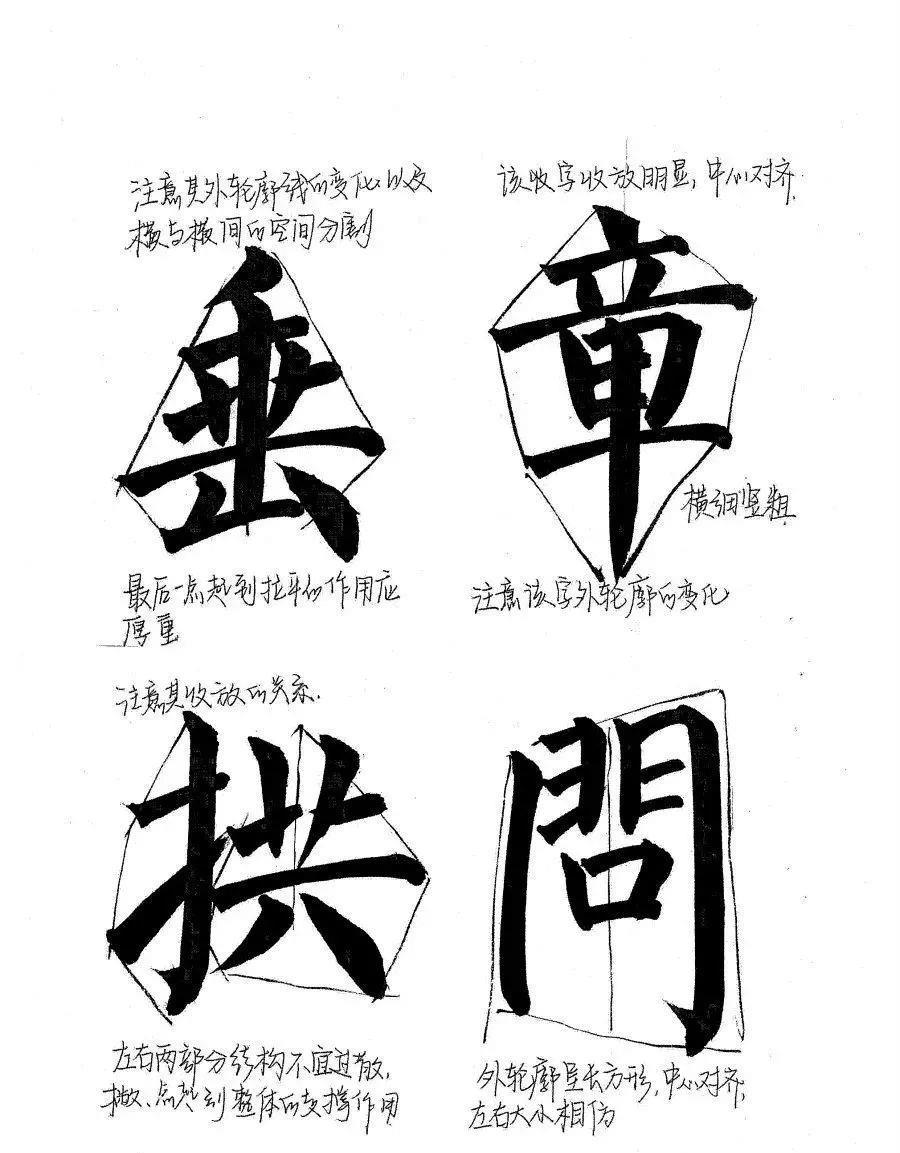 注意其外轮廓线的变化以及
横与横间的空间分割
垂
最后一点起到拉平的作用应
厚重
该收字收放明显，中心对齐.
章
横细竖粗
注意该字外轮廓的变化
注意其收放的关系.
拱
左右两部分结构不宜过散，
撇、点起到整体的支撑作用
問
外轮廓呈长方形，中心对齐，
左右大小相仿